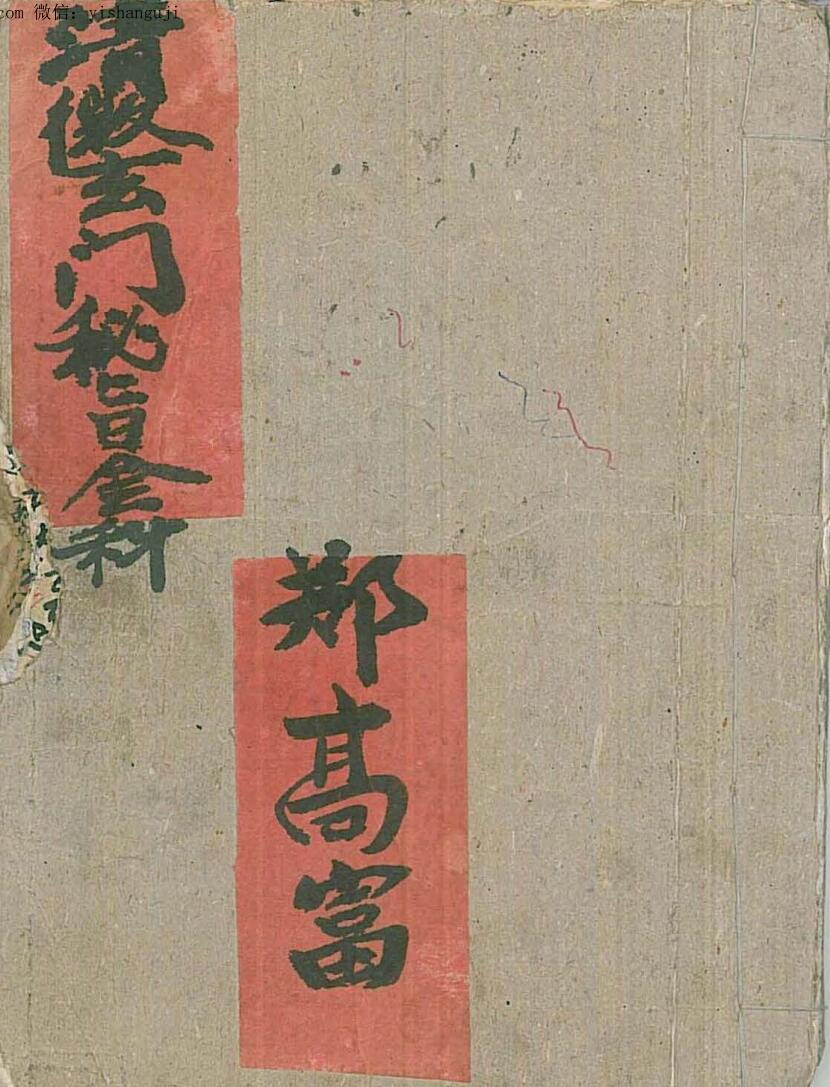 com 微信：yishanguji
清微玄门秘旨金科
郑高富